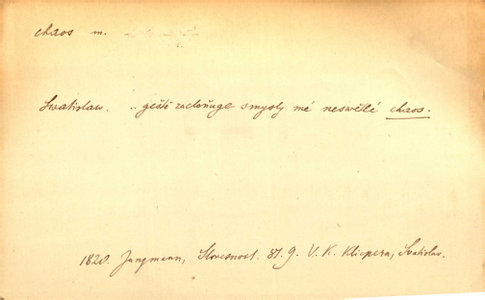 chaos m.
Swatislaw. .. gešťe zacloňuge smysly mé neswětlé chaos.
1820. Jungmann, Slovesnost. 87. 9. V. K. Klicpera, Swatislav.